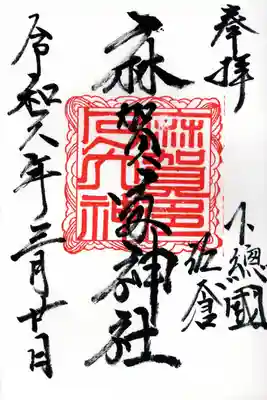 奉拝
下總國
佐倉
麻賀多神社
令和六年三月廿日